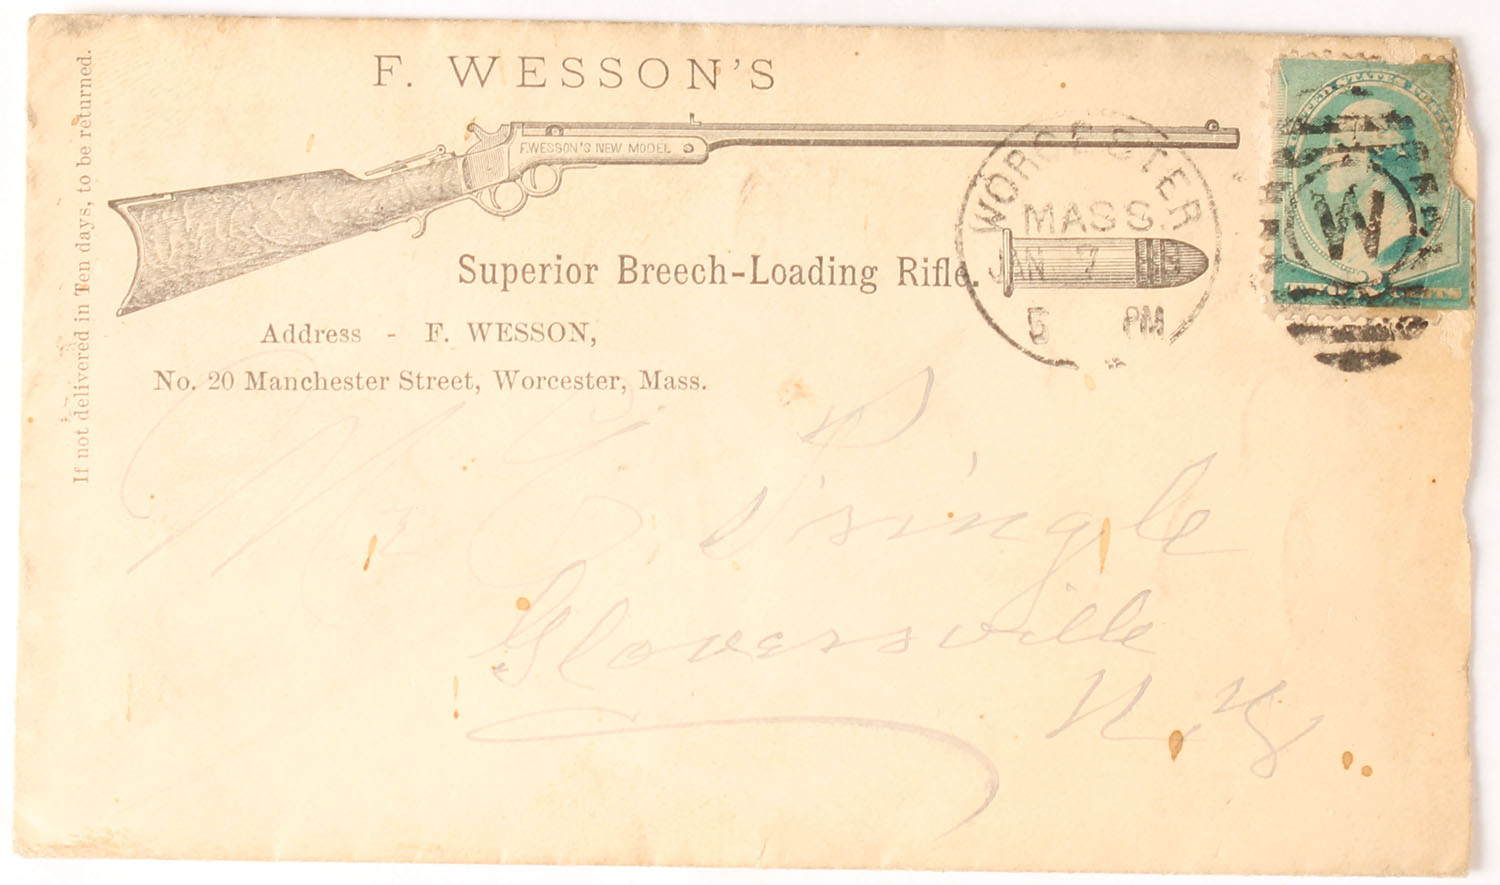 If not delivered in Ten days, to be returned.
F. WESSON'S
F.WESSON'S NEW MODEL
Superior Breech-Loading Rifle.
Address - F. WESSON,
No. 20 Manchester Street, Worcester, Mass.
WORCESTER
MASS
JAN 7
5 PM
W
UNITED STATES
CENTS
Mr
Pringle
Gloversville
N.Y.